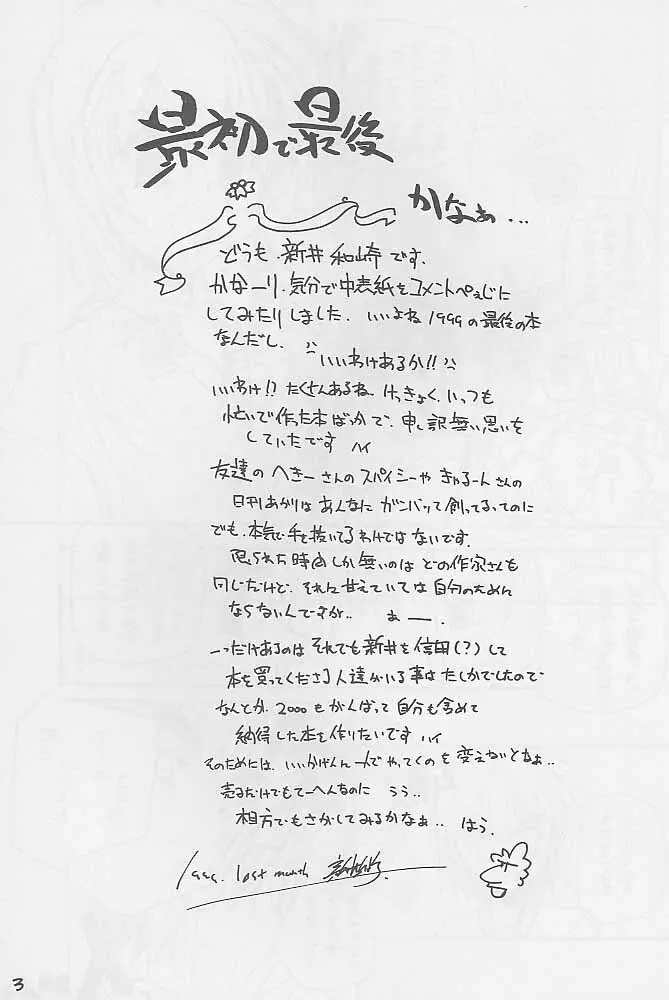 最初で最後
かなぁ...
どうも.新井和崎です.
かなーり.気分で中表紙をコメントぺぇじに
してみたりしました. いいよね 1999の最後の本
なんだし.
いいわけあるか!!
いいわけ!? たくさんあるね. けっきょく.いっつも
忙いで作った本ばっかで. 申し訳無い思いを
していたです ハイ
友達の へきーさんのスパイシーや きゃるーん さんの
日刊あかりは あんなに ガンバッて創ってるってのに
でも.本気で手を抜いてるわけではないです.
限られた時間しか無いのは どの作家さんも
同じだけど. それに甘えていては自分のために
ならないんですが.. ぁー.
一つだけあるのは それでも新井を信用(?)して
本を買ってくださる人達がいる事はたしかでしたので
なんとか. 2000もがんばって 自分も含めて
納得した本を作りたいです ハイ
そのためには. いいかげん 一人でやってくのを変えないとなぁ..
売るだけでもてーへんなのに うぅ..
相方でもさがしてみるかなぁ.. はう.
1999. last month
3